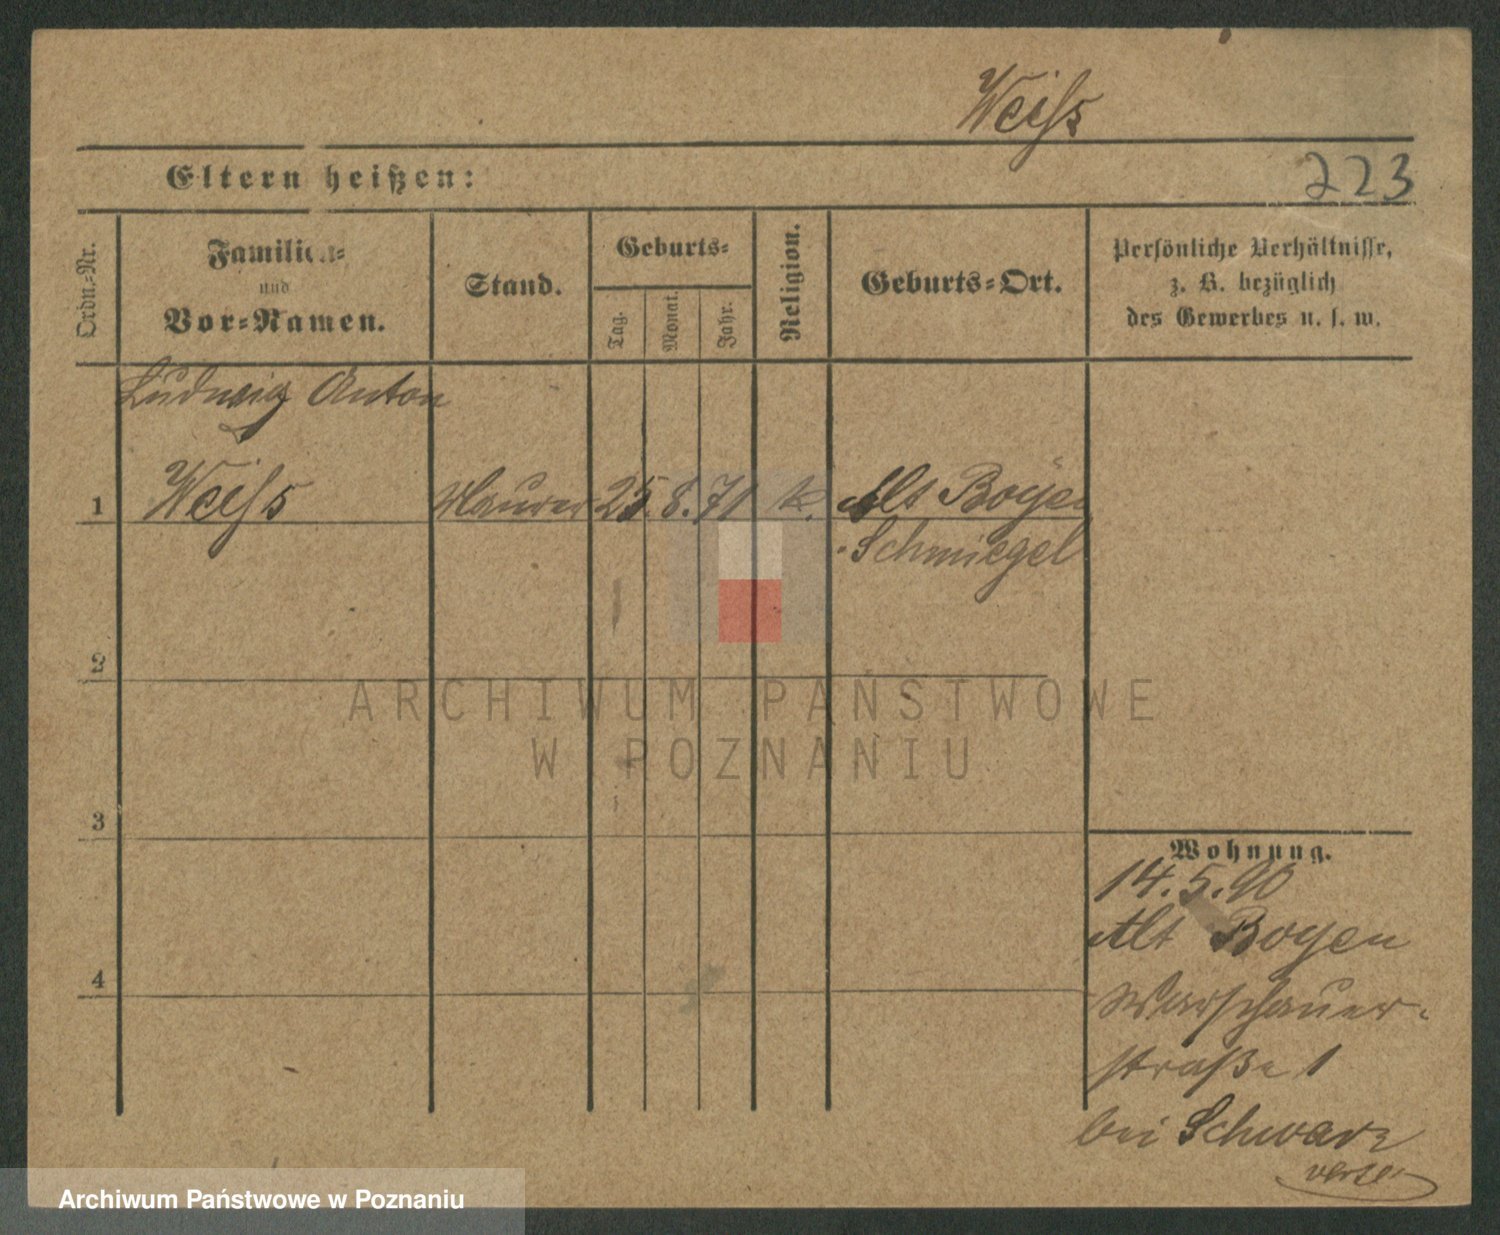 Weiß
Eltern heißen:
223
Ordn.-Nr.
Familien-
und
Vor-Namen.
Stand.
Geburts-
Tag.
Monat.
Jahr.
Religion.
Geburts-Ort.
Persönliche Verhältnisse,
z. B. bezüglich
des Gewerbes u. s. w.
Ludwig Anton
1 Weiß Maurer 25. 8. 71 k. Alt Boyen
Schmiegel
2
ARCHIWUM PAŃSTWOWE
W POZNANIU
3
Wohnung.
14. 5. 90
Alt Boyen
4
Warschauer-
straße 1
bei Schwarz
Archiwum Państwowe w Poznaniu